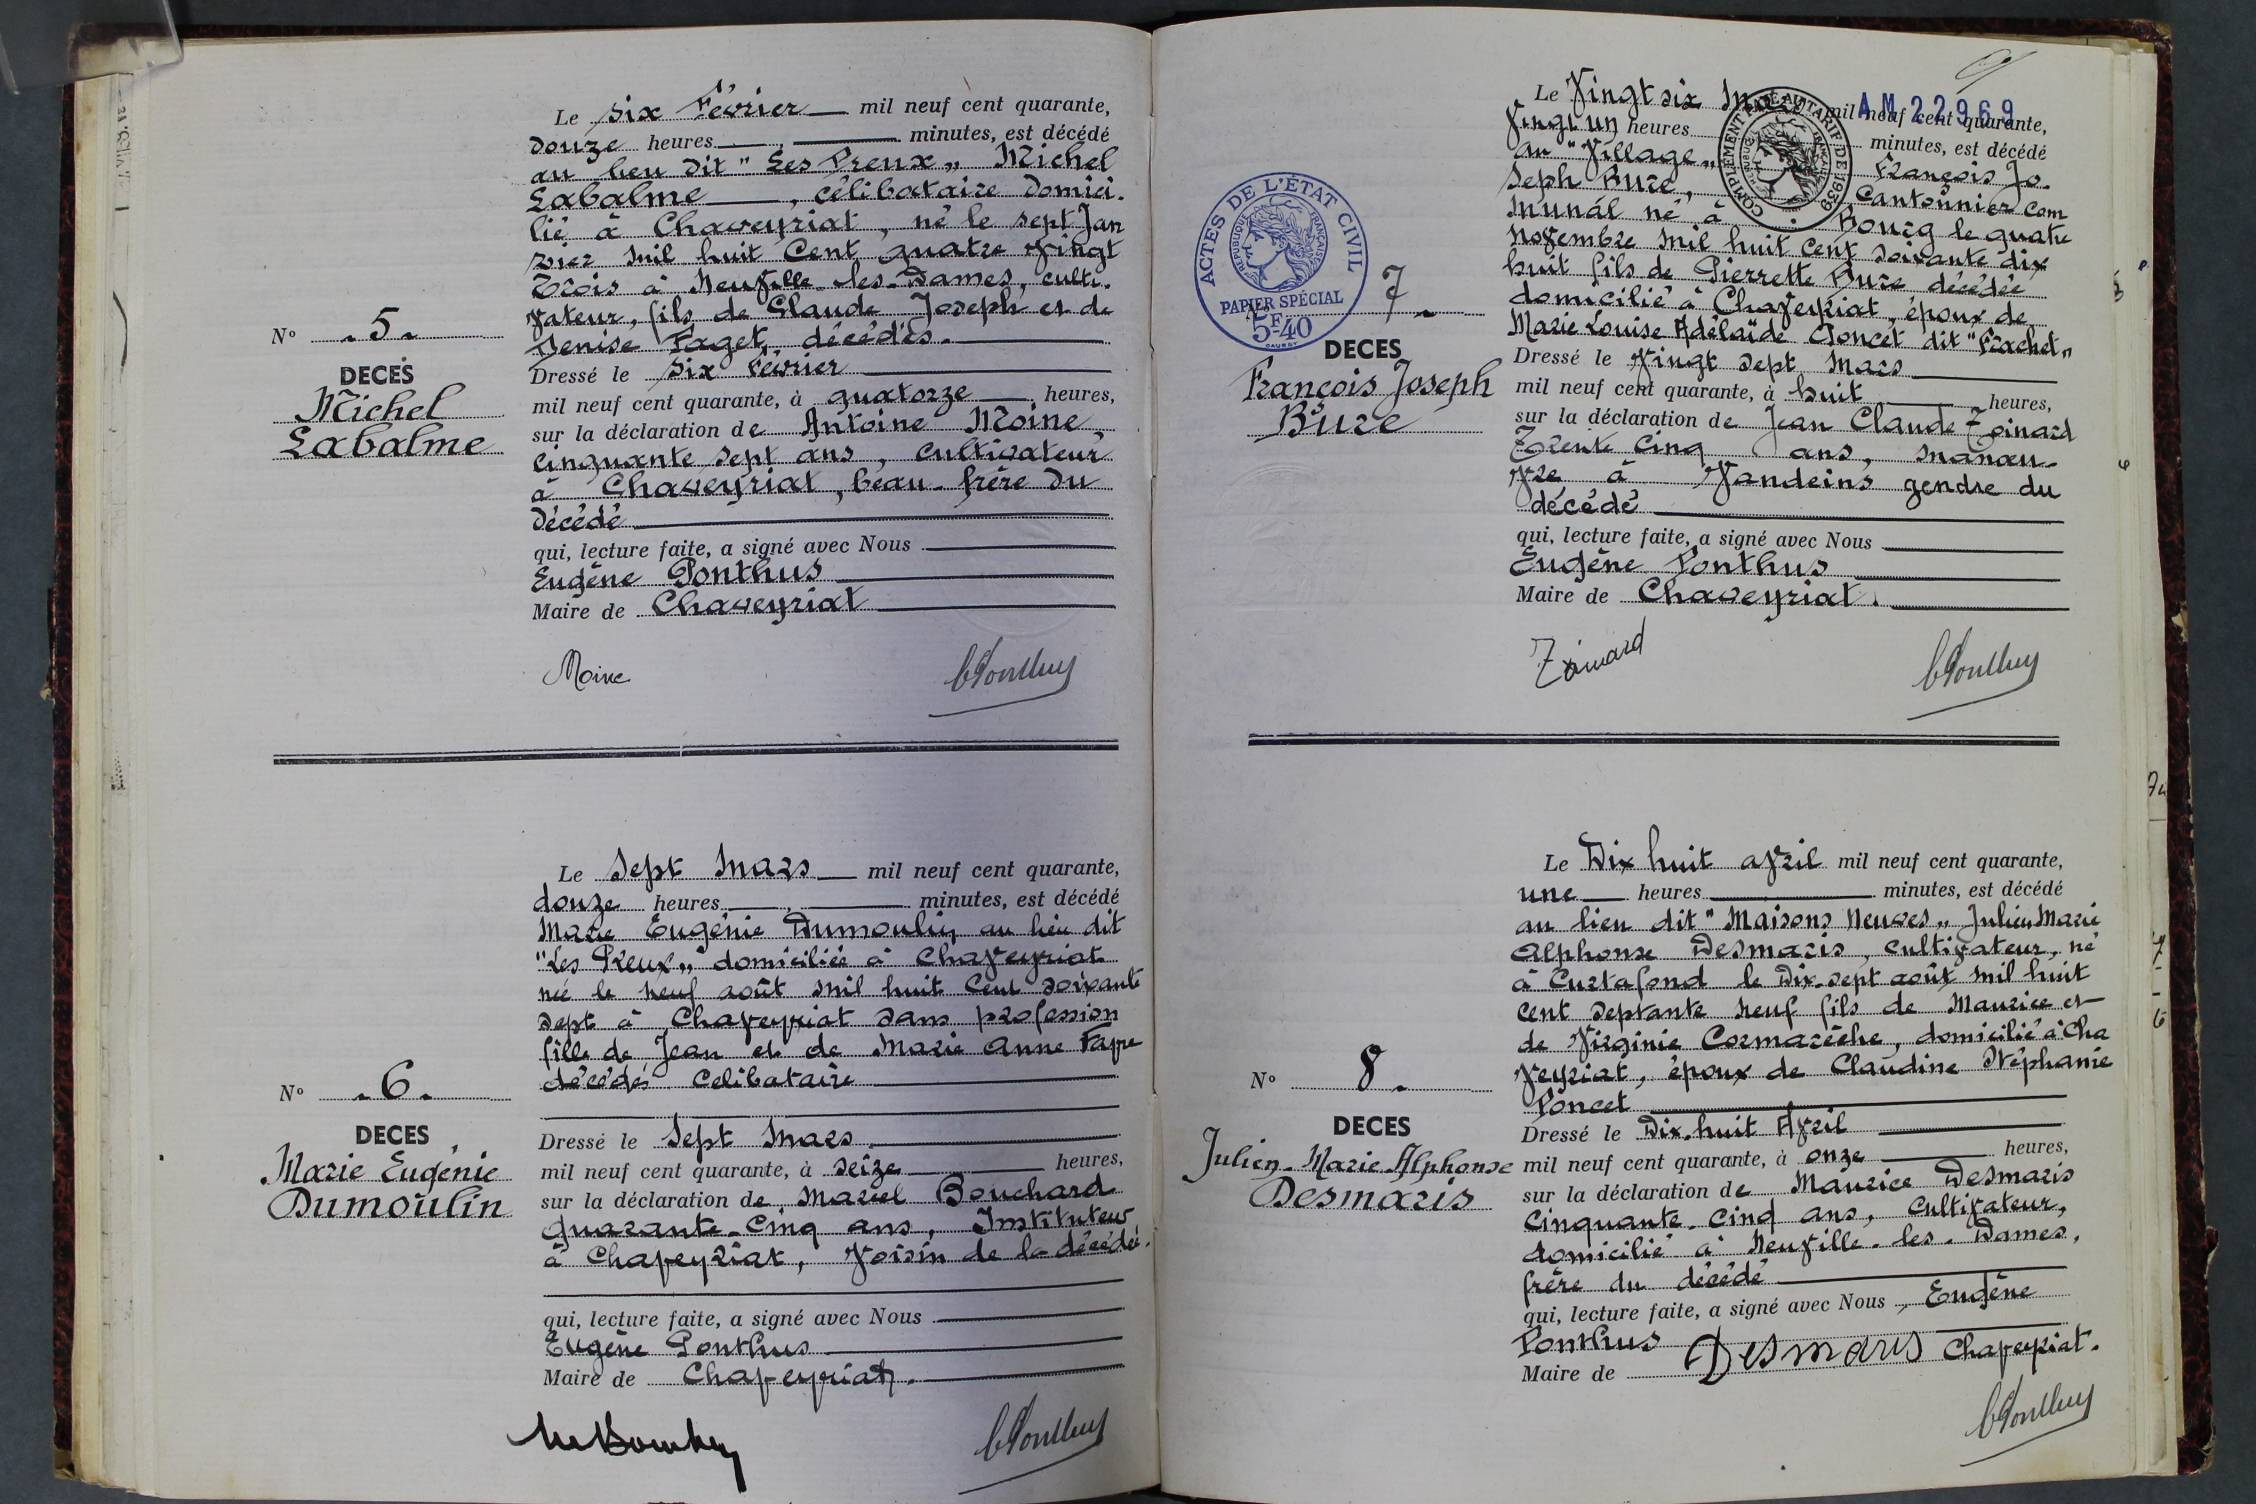 Le six Février mil neuf cent quarante,
douze heures , minutes, est décédé
au lieu dit " Les Preux „ Michel
Labalme , célibataire domici.
lié à Chaveyriat , né le sept Jan
vier mil huit Cent quatre Vingt
Trois à Neuville-les-Dames, culti.
vateur, fils de Claude Joseph et de
Denise Paget, décédés.
N° .5.
DECES
Michel
Labalme
Dressé le six Février
mil neuf cent quarante, à quatorze heures,
sur la déclaration de Antoine Moine
cinquante sept ans , cultivateur
à Chaveyriat , beau-frère du
décédé
qui, lecture faite, a signé avec Nous
Eugène Ponthus
Maire de Chaveyriat
Moine
EPonthus
Le Sept Mars mil neuf cent quarante,
douze heures , minutes, est décédé
Marie Eugénie Dumoulin au lieu dit
"Les Preux„ domiciliée à Chaveyriat
née le neuf août mil huit Cent soixante
sept à Chaveyriat sans profession
fille de Jean et de Marie Anne
décédés celibataire
N° .6.
DECES
Marie Eugénie
Dumoulin
Dressé le Sept Mars
mil neuf cent quarante, à seize heures,
sur la déclaration de Marcel Bouchard
quarante-cinq ans, Instituteur
à Chaveyriat, voisin de la décédée.
qui, lecture faite, a signé avec Nous
Eugène Ponthus
Maire de Chaveyriat.
EPonthus
AM 22969
Le Vingt six Mars mil neuf cent quarante,
Vingt un heures minutes, est décédé
au "Village„ François Jo.
seph Bure, Cantonnier com
munal né à Bourg le quatre
Novembre mil huit cent soixante dix
huit fils de Pierrette Bure décédée
domicilié à Chaveyriat, époux de
Marie Louise Adélaïde Goncet dit "Frachet„
COMPLÉMENT PAYÉ AU TARIF DE 1939
ACTES DE L'ÉTAT CIVIL
RÉPUBLIQUE FRANÇAISE
PAPIER SPÉCIAL
5F40
7.
DECES
François Joseph
Bure
Dressé le Vingt sept Mars
mil neuf cent quarante, à huit heures,
sur la déclaration de Jean Claude Toinard
Trente cinq ans, manœu-
vre à Vandeins gendre du
décédé
qui, lecture faite, a signé avec Nous
Eugène Ponthus
Maire de Chaveyriat.
Toinard
EPonthus
Le Dix huit avril mil neuf cent quarante,
une heures minutes, est décédé
au lieu dit " Maisons Neuves „ Julien Marie
Alphonse Desmaris, cultivateur, né
à Curtafond le Dix-sept août mil huit
cent septante neuf fils de Maurice et
de Virginie Cormarèche, domicilié à Cha
veyriat, époux de Claudine Stéphanie
Poncet
N° 8.
DECES
Julien-Marie-Alphonse
Desmaris
Dressé le Dix-huit Avril
mil neuf cent quarante, à onze heures,
sur la déclaration de Maurice Desmaris
cinquante-cinq ans, cultivateur,
domicilié à Neuville-les-Dames,
frère du décédé
qui, lecture faite, a signé avec Nous, Eugène
Ponthus
Maire de Chaveyriat.
Desmaris
EPonthus